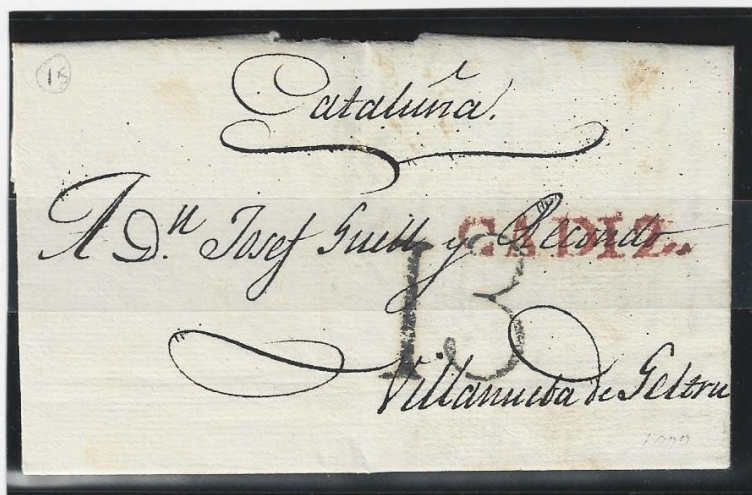 15
Cataluña.
A D.n Josef Guell y Recondo
CADIZ.
13
Villanueba de Geltru